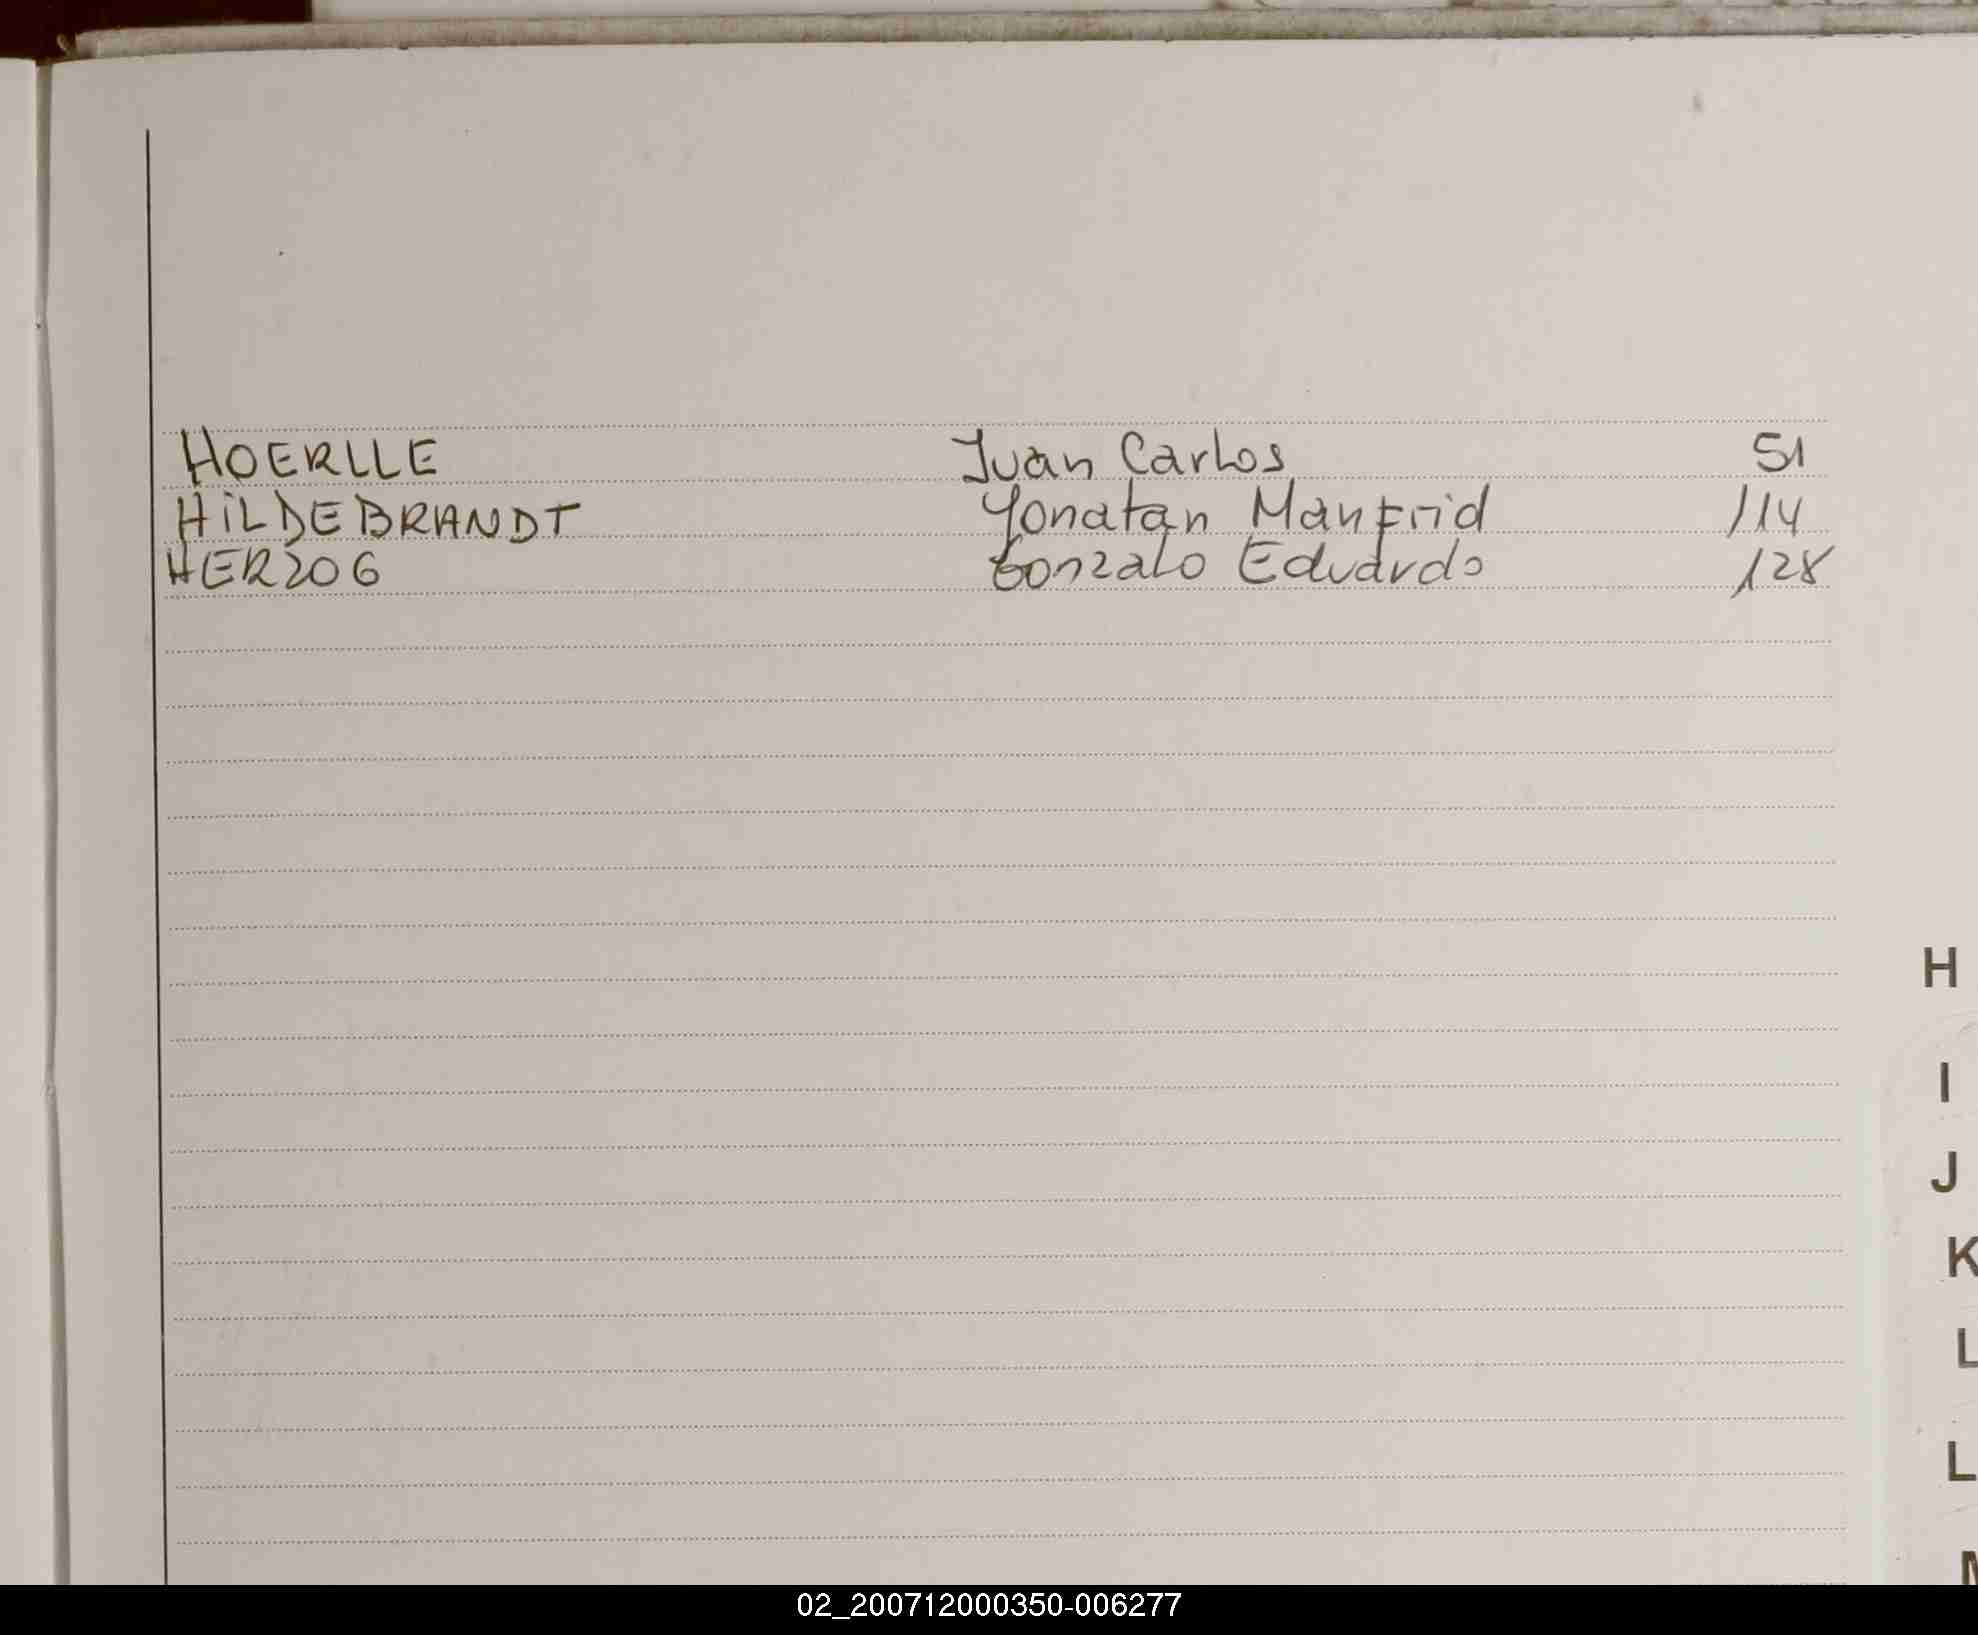 HOERLLE Juan Carlos 51
HiLDEBRANDT Yonatan Manfrid 114
HERZOG Gonzalo Eduardo 128
H
I
J
K
L
L
M
02_200712000350-006277